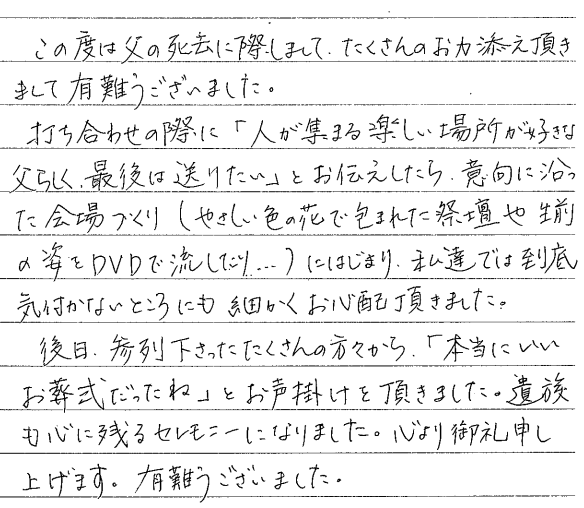 この度は父の死去に際しまして、たくさんのお力添え頂き
まして有難うございました。
打ち合わせの際に「人が集まる楽しい場所が好きな
父らしく、最後は送りたい」とお伝えしたら、意向に沿っ
た会場づくり(やさしい色の花で包まれた祭壇や生前
の姿をDVDで流したり…)にはじまり、私達では到底
気付かないところにも細かくお心配頂きました。
後日、参列下さったたくさんの方々から、「本当にいい
お葬式だったね」とお声掛けを頂きました。遺族
も心に残るセレモニーになりました。心より御礼申し
上げます。有難うございました。